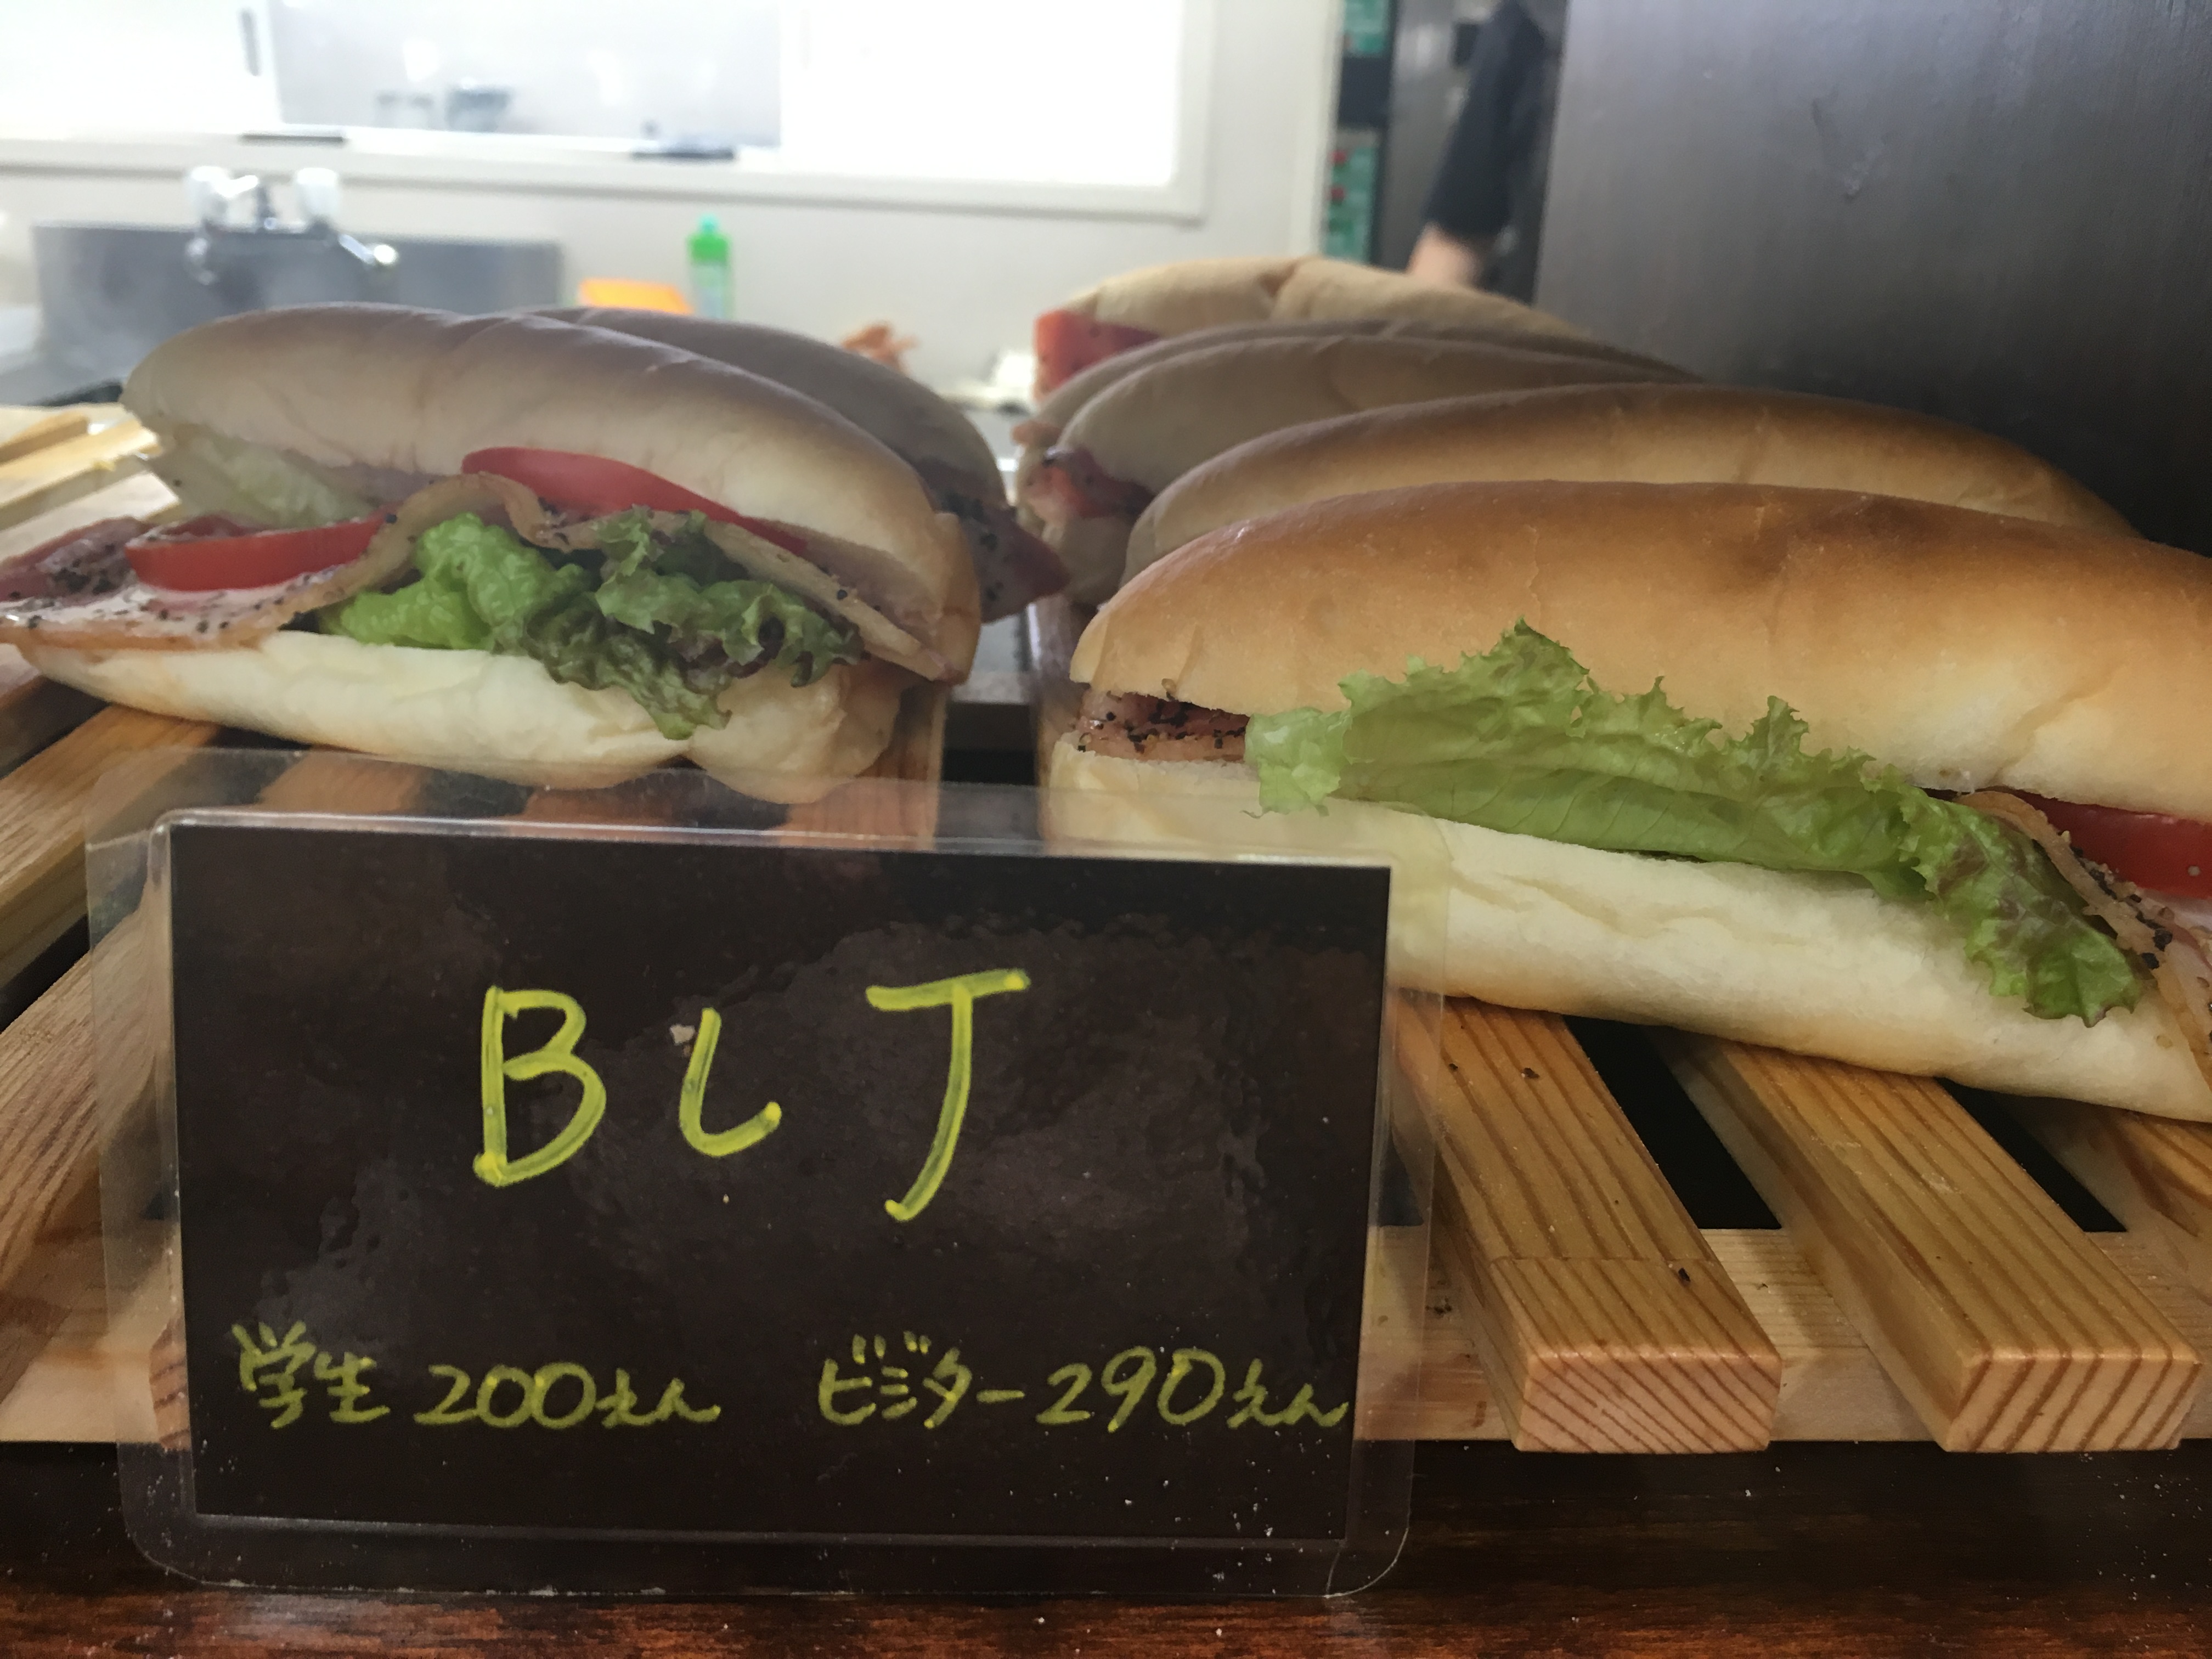 BLT
学生 200えん ビジター 290えん